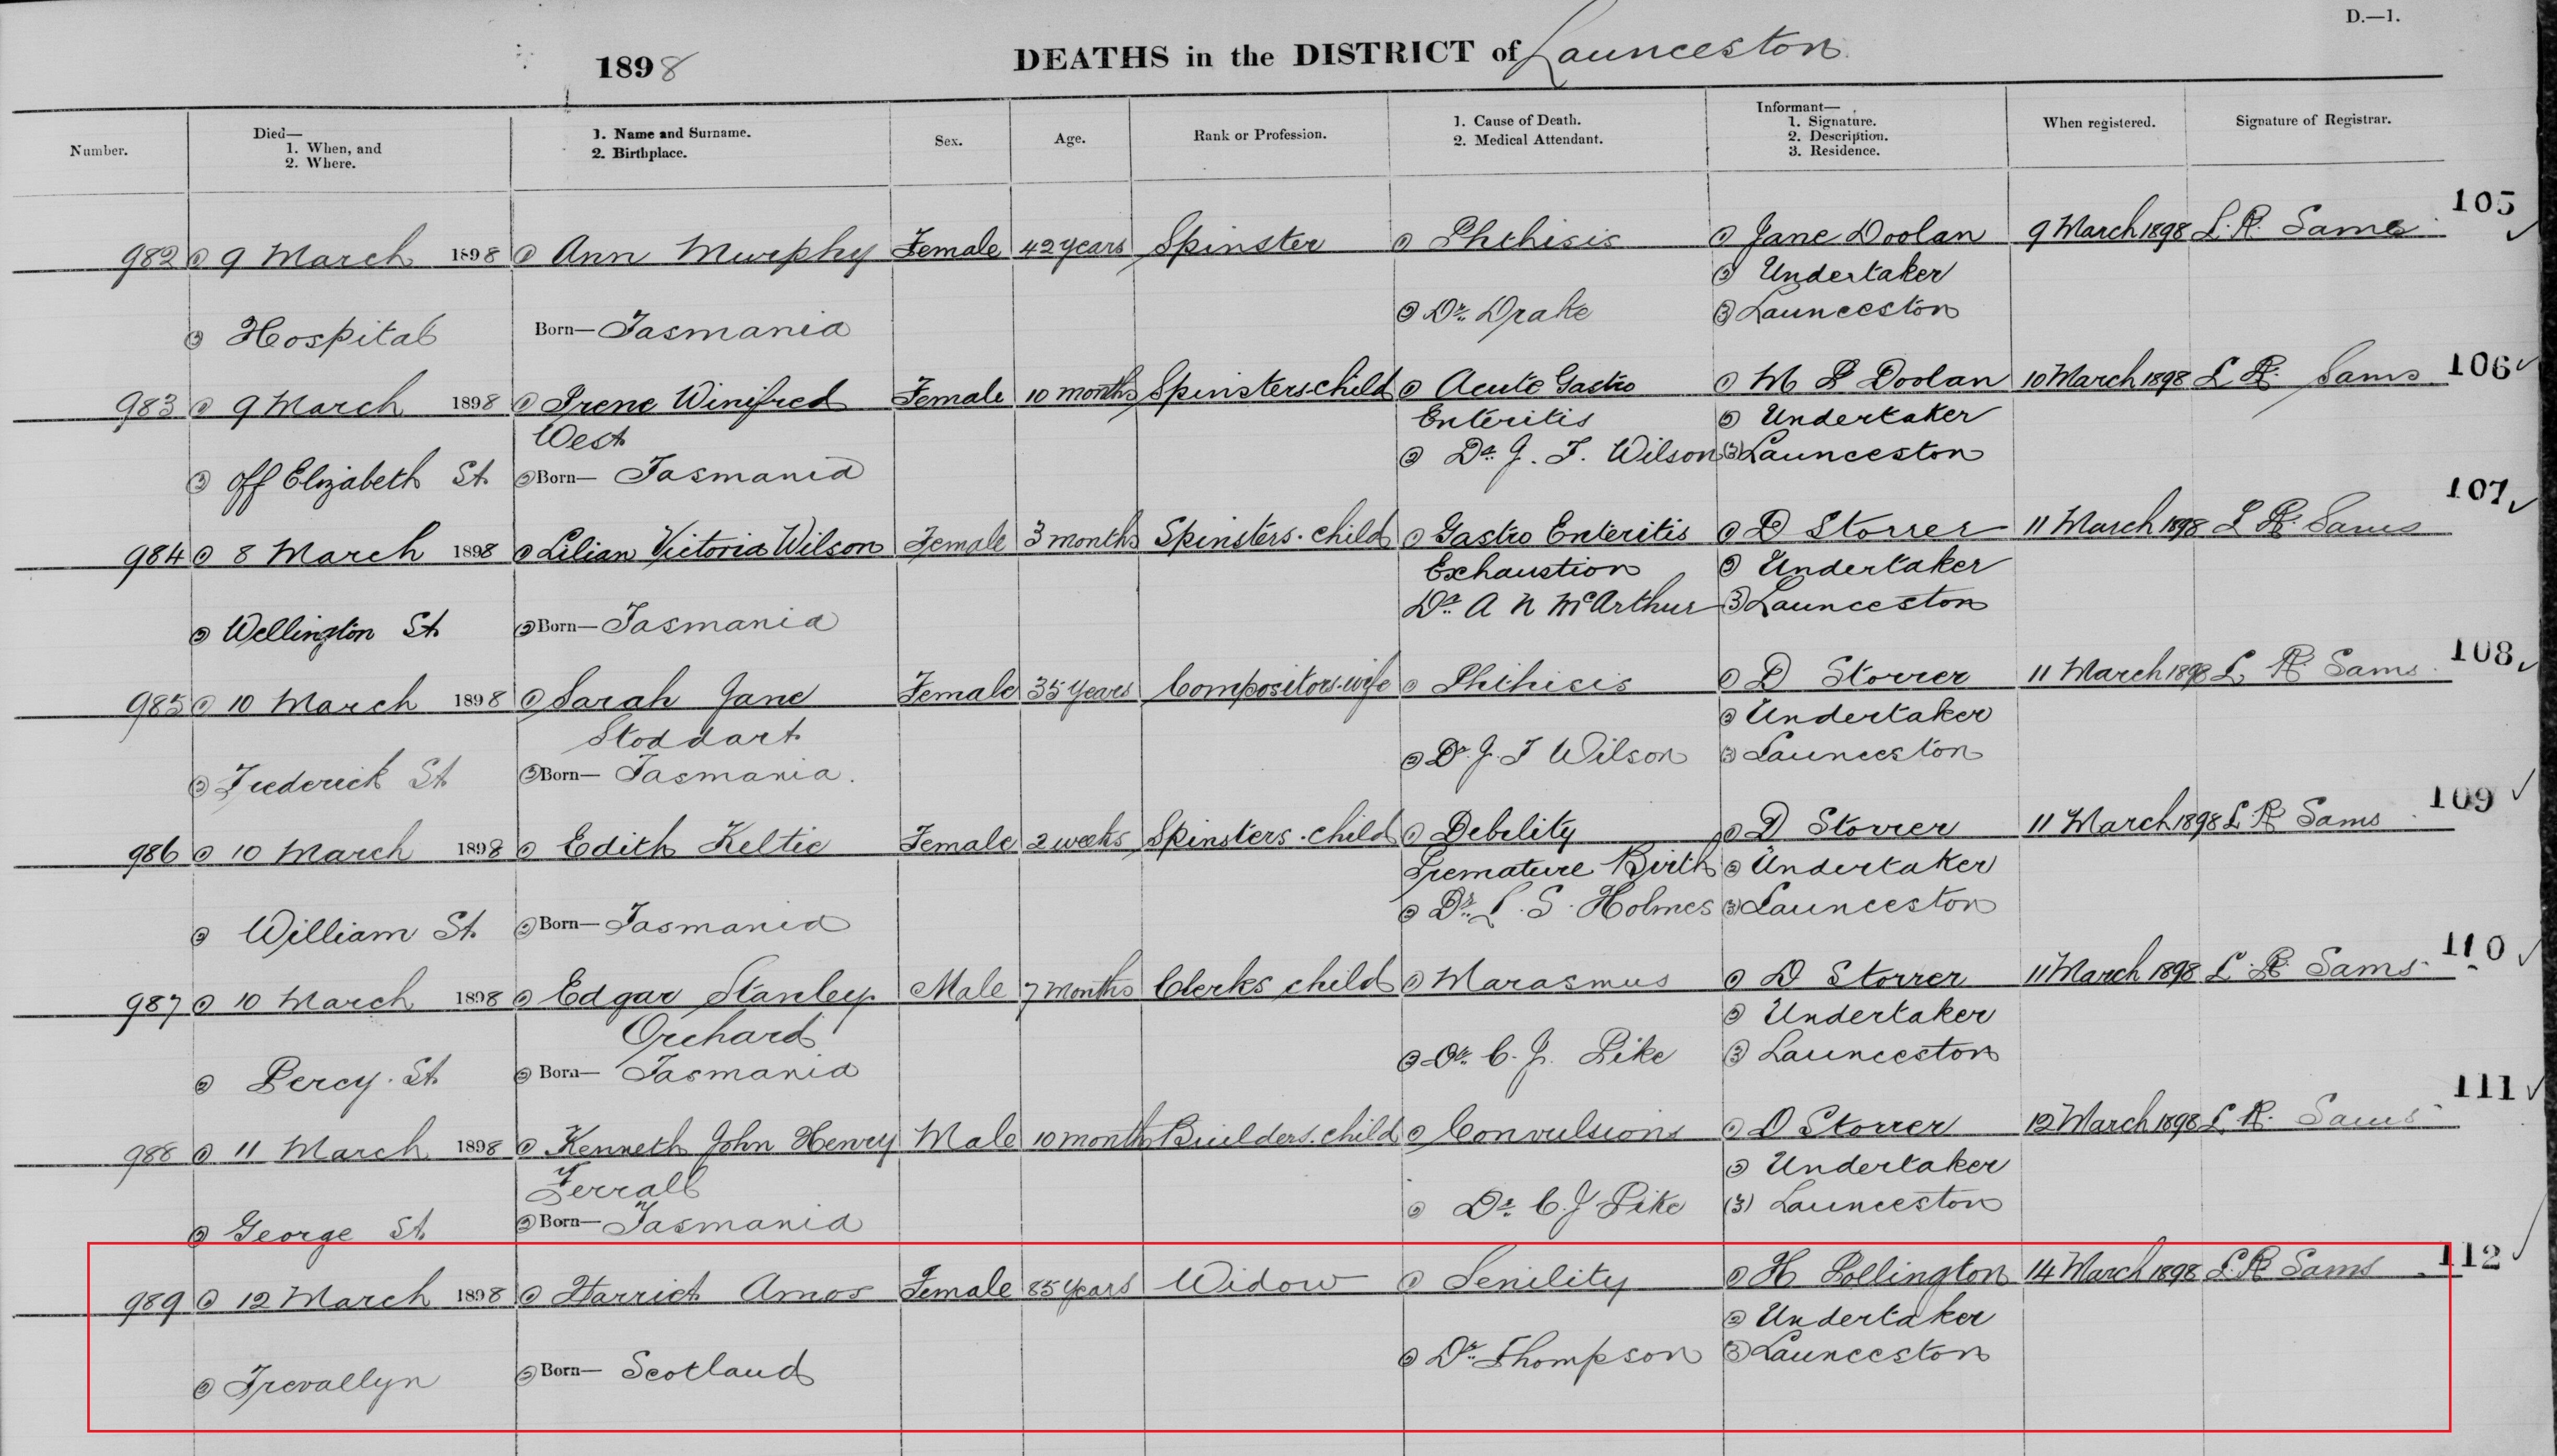 D.—1.
1898 DEATHS in the DISTRICT of Launceston
Number.
Died—
1. When, and
2. Where.
1. Name and Surname.
2. Birthplace.
Sex.
Age.
Rank or Profession.
1. Cause of Death.
2. Medical Attendant.
Informant—
1. Signature.
2. Description.
3. Residence.
When registered.
Signature of Registrar.
105
982 (1) 9 March 1898 (1) Ann Murphy Female 42 years Spinster (1) Phthisis (1) Jane Doolan 9 March 1898 L. R. Sams
(2) Undertaker
(2) Hospital Born— Tasmania (2) Dr. Drake (3) Launceston
106
983 (1) 9 March 1898 (1) Irene Winifred Female 10 months Spinsters child (1) Acute Gastro (1) M L Doolan 10 March 1898 L R. Sams
West Enteritis (2) Undertaker
(2) off Elizabeth St. (2) Born— Tasmania (2) Dr. J. T. Wilson (3) Launceston
107
984 (1) 8 March 1898 (1) Lilian Victoria Wilson Female 3 months Spinsters. child (1) Gastro Enteritis (1) D Storrer 11 March 1898 L R. Sams
Exhaustion (2) Undertaker
(2) Wellington St. (2) Born— Tasmania Dr. A N McArthur (3) Launceston
108
985 (1) 10 March 1898 (1) Sarah Jane Female 35 Years Compositors. wife (1) Phthisis (1) D Storrer 11 March 1898 L R. Sams
Stoddart (2) Undertaker
(2) Frederick St. (2) Born— Tasmania. (2) Dr. J. T Wilson (3) Launceston
109
986 (1) 10 March 1898 (1) Edith Keltie Female 2 weeks Spinsters. child (1) Debility (1) D Storrer 11 March 1898 L R Sams
Premature Birth (2) Undertaker
(2) William St. (2) Born— Tasmania (2) Dr. L. S. Holmes (3) Launceston
110
987 (1) 10 March 1898 (1) Edgar Stanley Male 7 months Clerks child (1) Marasmus (1) D Storrer 11 March 1898 L. R. Sams
Orchard (2) Undertaker
(2) Percy. St. (2) Born— Tasmania (2) Dr. C. J. Pike (3) Launceston
111
988 (1) 11 March 1898 (1) Kenneth John Henry Male 10 months Builders. child (1) Convulsions (1) D Storrer 12 March 1898 L R. Sams
Ferrall (2) Undertaker
(2) George St. (2) Born— Tasmania (2) Dr. C. J Pike (3) Launceston
112
989 (1) 12 March 1898 (1) Harriet Amos Female 85 Years Widow (1) Senility (1) H Pollington 14 March 1898 L. R Sams
(2) Undertaker
(2) Trevallyn (2) Born— Scotland (2) Dr. Thompson (3) Launceston